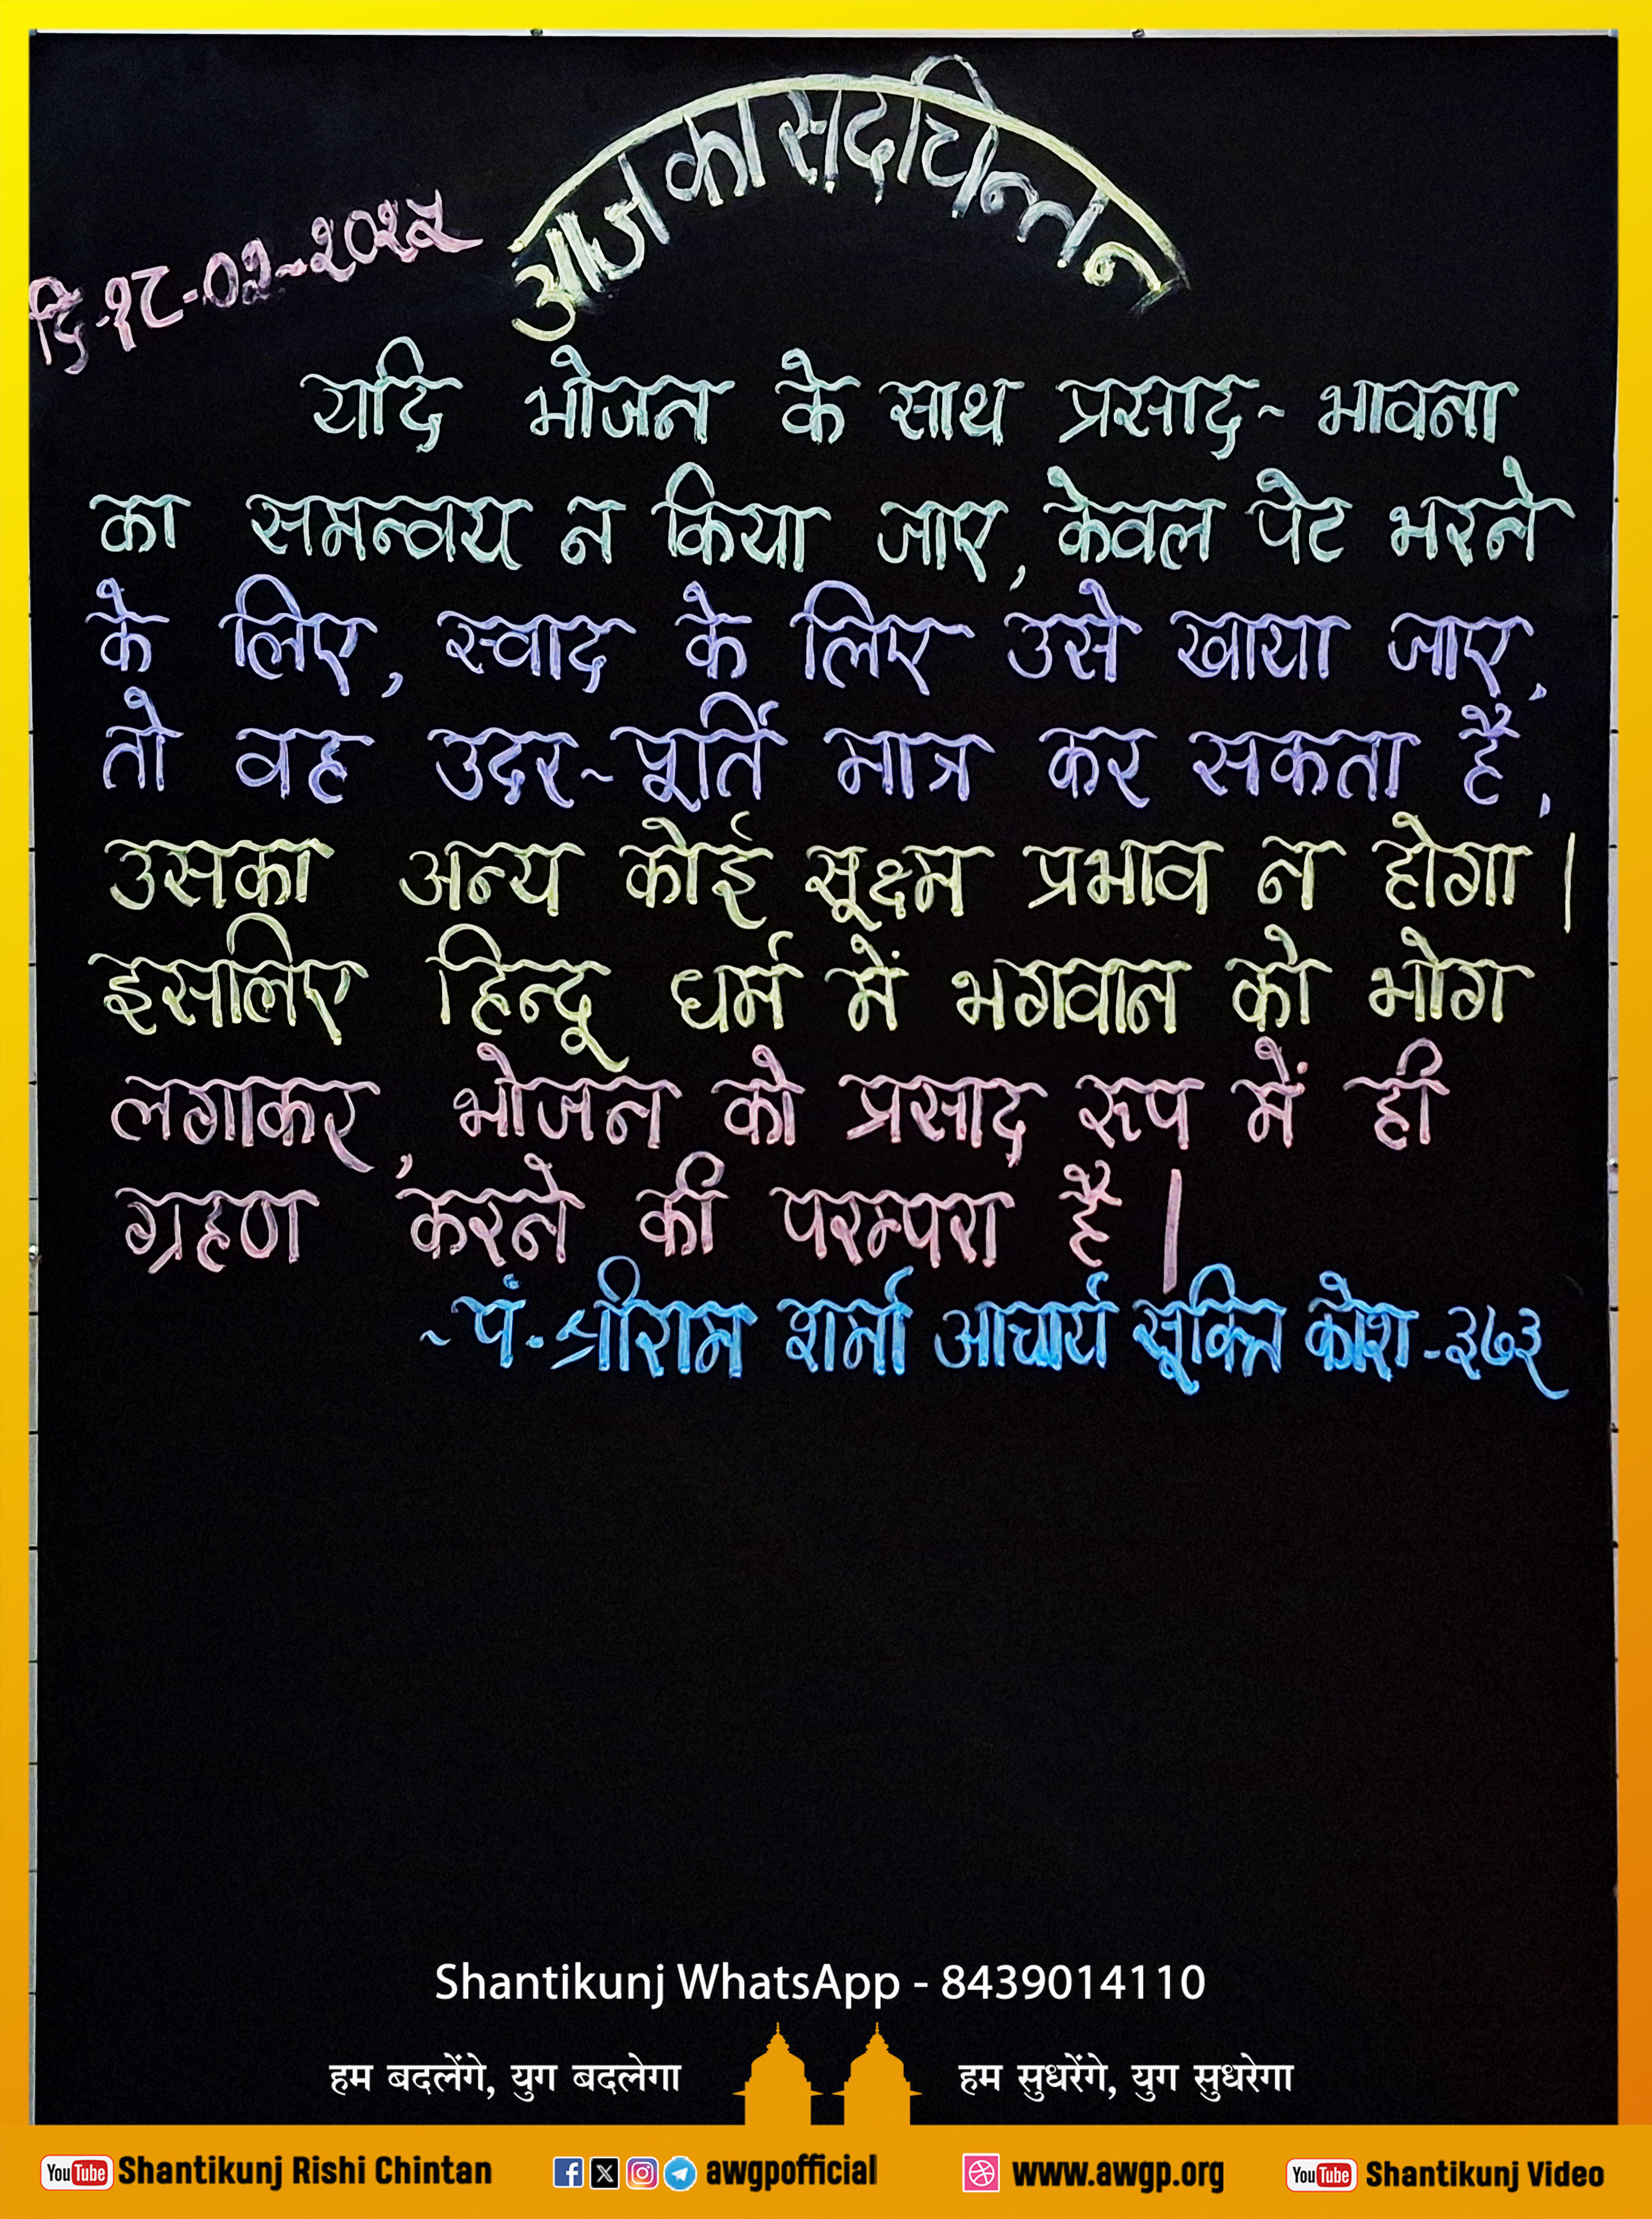 आज का सदचिन्तन
दि-१८-०२-२०२५
यदि भोजन के साथ प्रसाद-भावना
का समन्वय न किया जाए, केवल पेट भरने
के लिए, स्वाद के लिए उसे खाया जाए,
तो वह उदर-पूर्ति मात्र कर सकता है,
उसका अन्य कोई सूक्ष्म प्रभाव न होगा।
इसलिए हिन्दू धर्म में भगवान को भोग
लगाकर, भोजन को प्रसाद रूप में ही
ग्रहण करने की परम्परा है।
- पं. श्रीराम शर्मा आचार्य सूक्ति कोश - ३७३
Shantikunj WhatsApp - 8439014110
हम बदलेंगे, युग बदलेगा हम सुधरेंगे, युग सुधरेगा
YouTube Shantikunj Rishi Chintan awgpofficial www.awgp.org YouTube Shantikunj Video